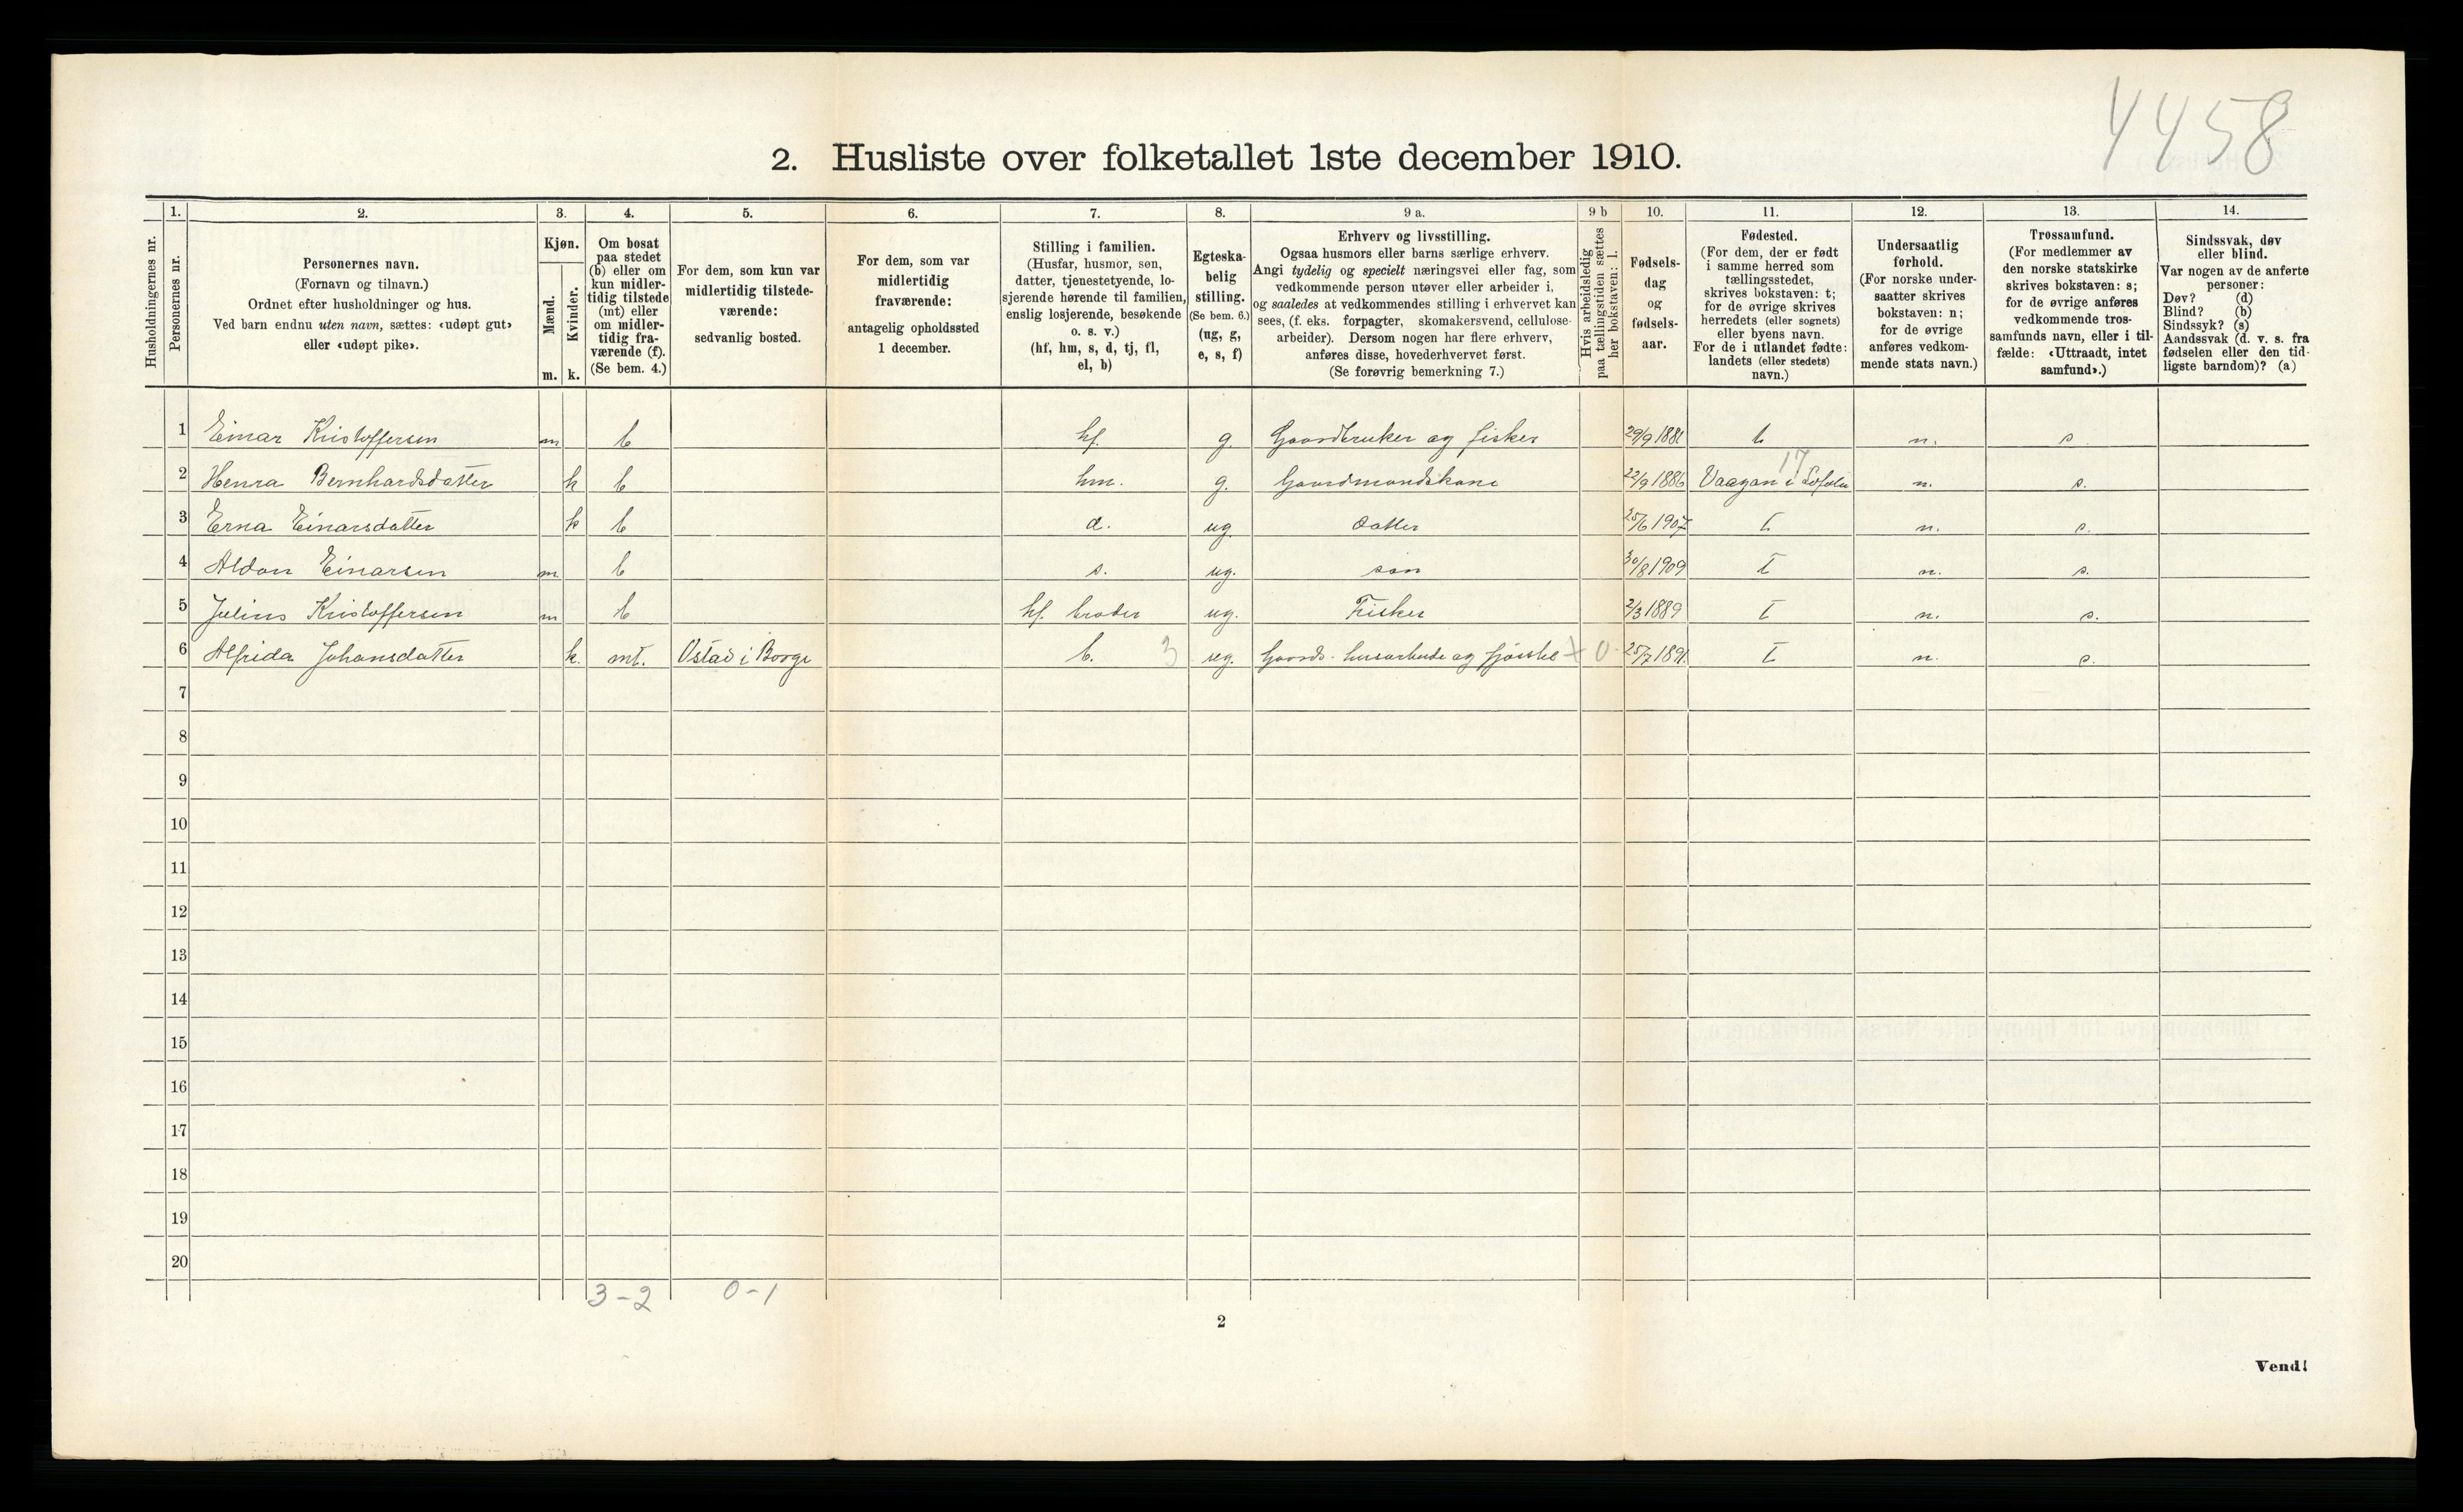 4458
2. Husliste over folketallet 1ste december 1910.
1. 2. 3. 4. 5. 6. 7. 8. 9 a. 9 b 10. 11. 12. 13. 14.
Husholdningernes nr.
Personernes nr.
Personernes navn.
(Fornavn og tilnavn.)
Ordnet efter husholdninger og hus.
Ved barn endnu uten navn, sættes: «udøpt gut»
eller «udøpt pike».
Kjøn.
Mænd.
Kvinder.
m. k.
Om bosat
paa stedet
(b) eller om
kun midler-
tidig tilstede
(mt) eller
om midler-
tidig fra-
værende (f).
(Se bem. 4.)
For dem, som kun var
midlertidig tilstede-
værende:
sedvanlig bosted.
For dem, som var
midlertidig
fraværende:
antagelig opholdssted
1 december.
Stilling i familien.
(Husfar, husmor, søn,
datter, tjenestetyende, lo-
sjerende hørende til familien,
enslig losjerende, besøkende
o. s. v.)
(hf, hm, s, d, tj, fl,
el, b)
Egteska-
belig
stilling.
(Se bem. 6.)
(ug, g,
e, s, f)
Erhverv og livsstilling.
Ogsaa husmors eller barns særlige erhverv.
Angi tydelig og specielt næringsvei eller fag, som
vedkommende person utøver eller arbeider i,
og saaledes at vedkommendes stilling i erhvervet kan
sees, (f. eks. forpagter, skomakersvend, cellulose-
arbeider). Dersom nogen har flere erhverv,
anføres disse, hovederhvervet først.
(Se forøvrig bemerkning 7.)
Hvis arbeidsledig
paa tællingstiden sættes
her bokstaven: l.
Fødsels-
dag
og
fødsels-
aar.
Fødested.
(For dem, der er født
i samme herred som
tællingsstedet,
skrives bokstaven: t;
for de øvrige skrives
herredets (eller sognets)
eller byens navn.
For de i utlandet fødte:
landets (eller stedets)
navn.)
Undersaatlig
forhold.
(For norske under-
saatter skrives
bokstaven: n;
for de øvrige
anføres vedkom-
mende stats navn.)
Trossamfund.
(For medlemmer av
den norske statskirke
skrives bokstaven: s;
for de øvrige anføres
vedkommende tros-
samfunds navn, eller i til-
fælde: «Uttraadt, intet
samfund».)
Sindssvak, døv
eller blind.
Var nogen av de anførte
personer:
Døv? (d)
Blind? (b)
Sindssyk? (s)
Aandssvak (d. v. s. fra
fødselen eller den tid-
ligste barndom)? (a)
1 Einar Kristoffersen m b hf. g. Gaardbruker og fisker 29/9 1881 t n. s.
17
2 Henra Bernhardsdatter k b hm. g. Gaardmandskone 22/9 1886 Vaagan i Lofoten n. s.
3 Erna Einarsdatter k b d. ug. datter 25/6 1907 t n. s.
4 Aldon Einarsen m b s. ug. søn 30/8 1909 t n. s.
5 Julius Kristoffersen m b hf. broder ug. Fisker 2/3 1889 t n. s.
6 Alfrida Johansdatter k. mt. Ostad i Borge b. 3 ug. Gaards- husarbeide og fjøsstel 0 25/7 1891. t n. s.
7
8
9
10
11
12
13
14
15
16
17
18
19
20
3-2 0-1
2
Vend!